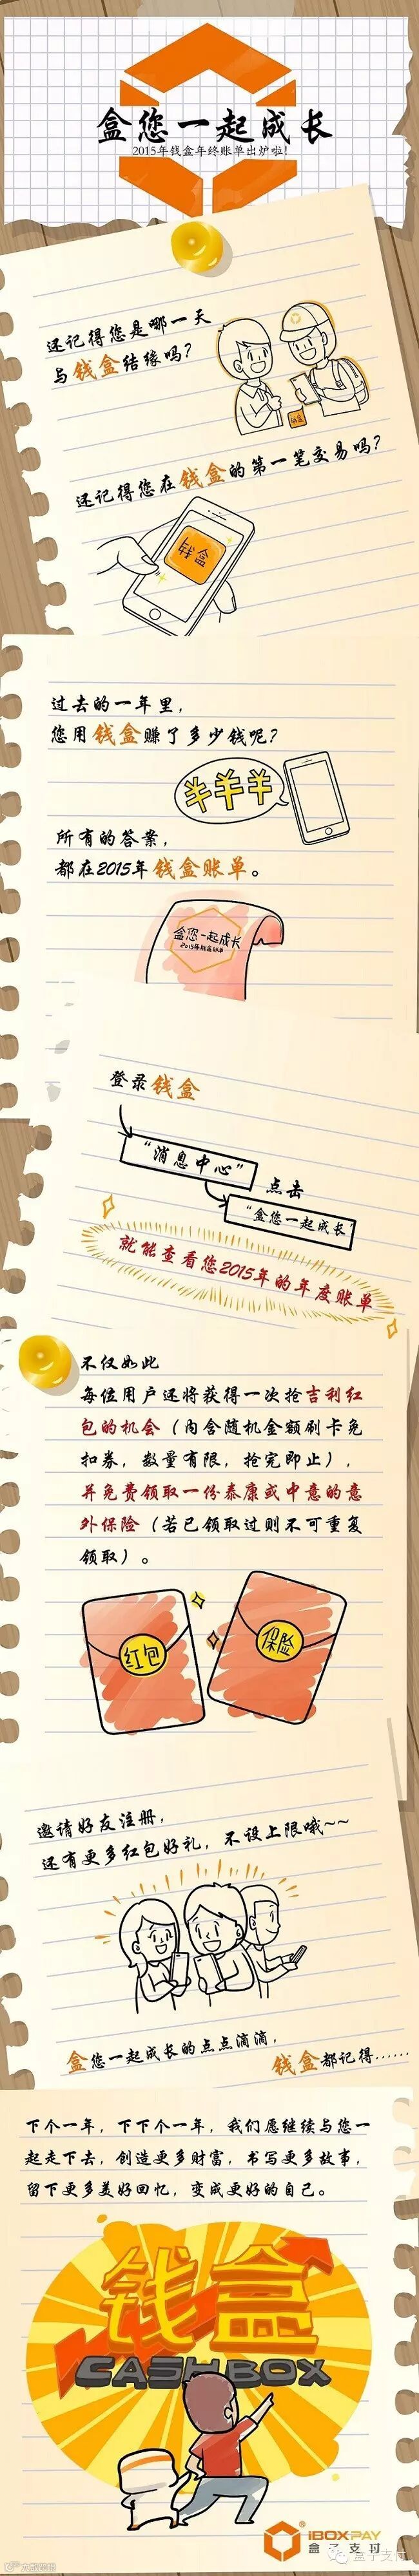 盒您一起成长
2015年钱盒年终账单出炉啦!
还记得您是哪一天
与钱盒结缘吗?
钱盒
还记得您在钱盒的第一笔交易吗?
钱盒
过去的一年里,
您用钱盒赚了多少钱呢?
所有的答案,
都在2015年钱盒账单。
盒您一起成长
登录钱盒
“消息中心”
点击
“盒您一起成长”
就能查看您2015年的年度账单
不仅如此
每位用户还将获得一次抢吉利红
包的机会(内含随机金额刷卡免
扣券,数量有限,抢完即止),
并免费领取一份泰康或中意的意
外保险(若已领取过则不可重复
领取)。
红包
保险
邀请好友注册,
还有更多红包好礼,不设上限哦~~
盒您一起成长的点点滴滴,
钱盒都记得……
下个一年,下下个一年,我们愿继续与您一
起走下去,创造更多财富,书写更多故事,
留下更多美好回忆,变成更好的自己。
钱盒
CASHBOX
iBOXPAY
盒子支付
盒子支付